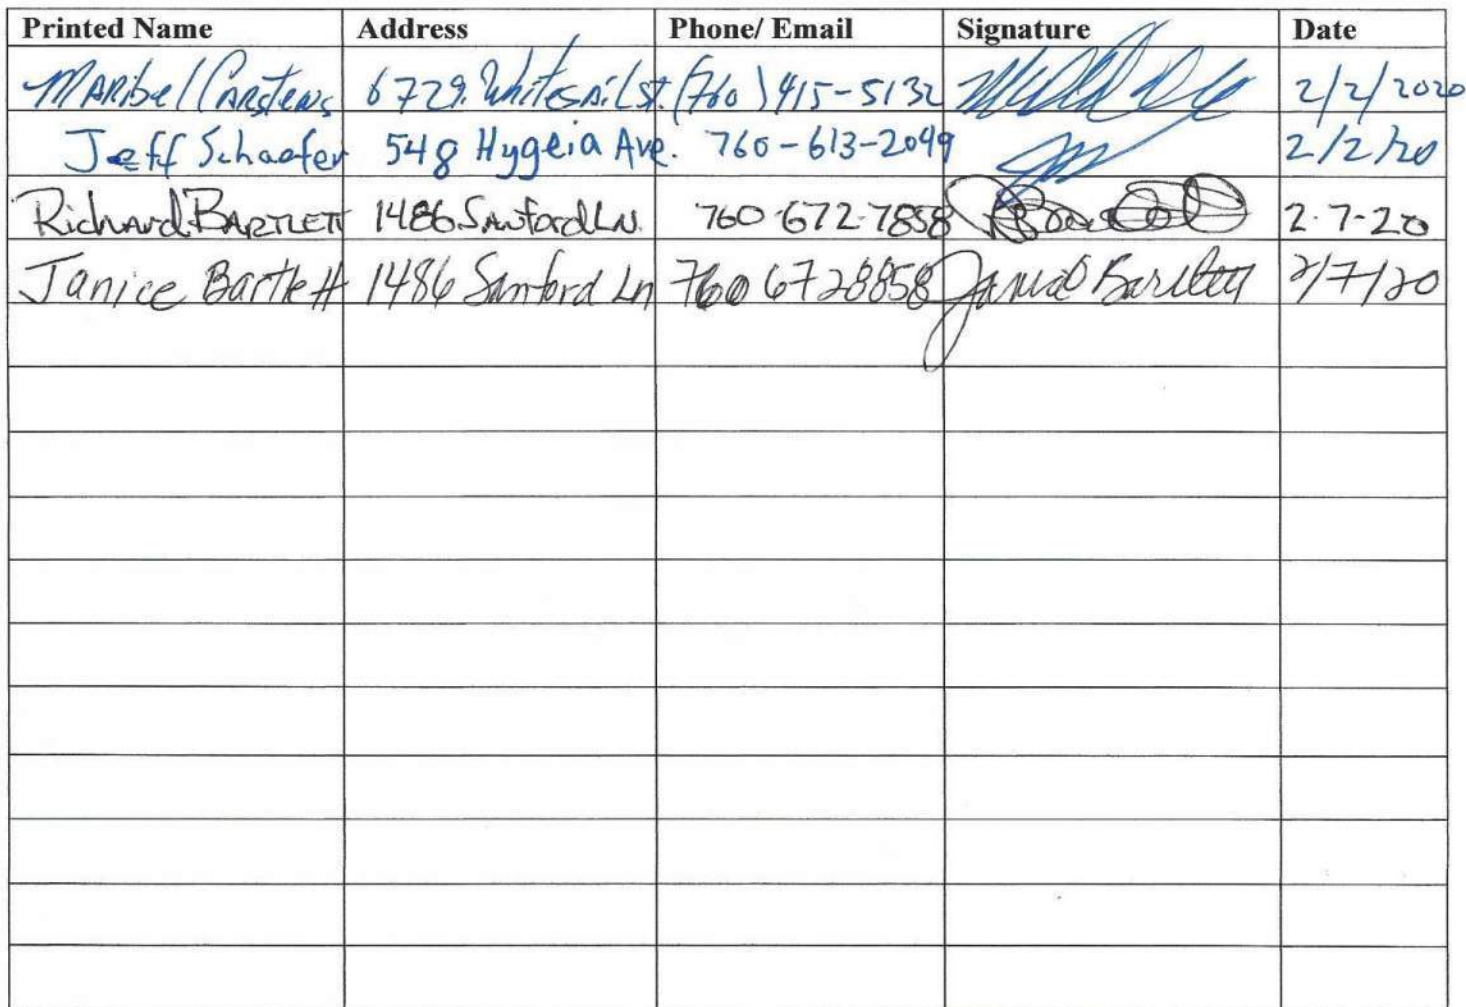 Printed Name Address Phone/ Email Signature Date
Maribel Carstens 6729. Whitesail St. (760) 415-5132 2/2/2020
Jeff Schaefer 548 Hygeia Ave. 760-613-2049 2/2/20
Richard BARTLETT 1486 Sanford LN. 760-672-7858 2-7-20
Janice Bartlett 1486 Sanford Ln 760 6728858 Janice Bartlett 2/7/20